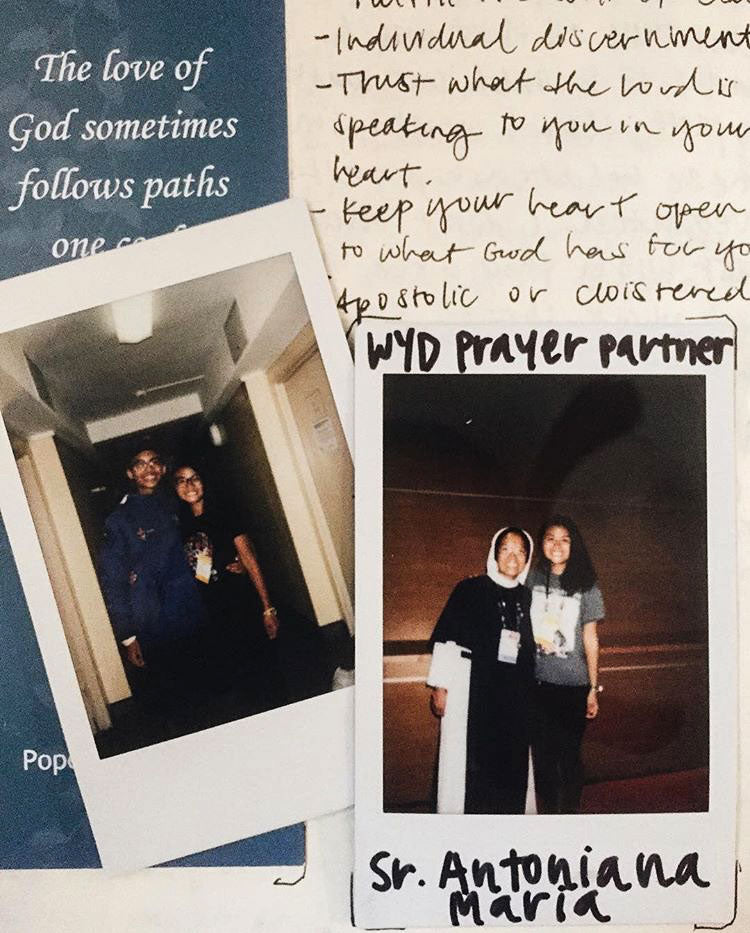 The love of
God sometimes
follows paths
one
Pope
- Individual discernment
- Trust what the Lord is
speaking to you in your
heart.
- Keep your heart open
to what God has for yo
Apostolic or cloistered
WYD prayer partner
Sr. Antoniana
Maria